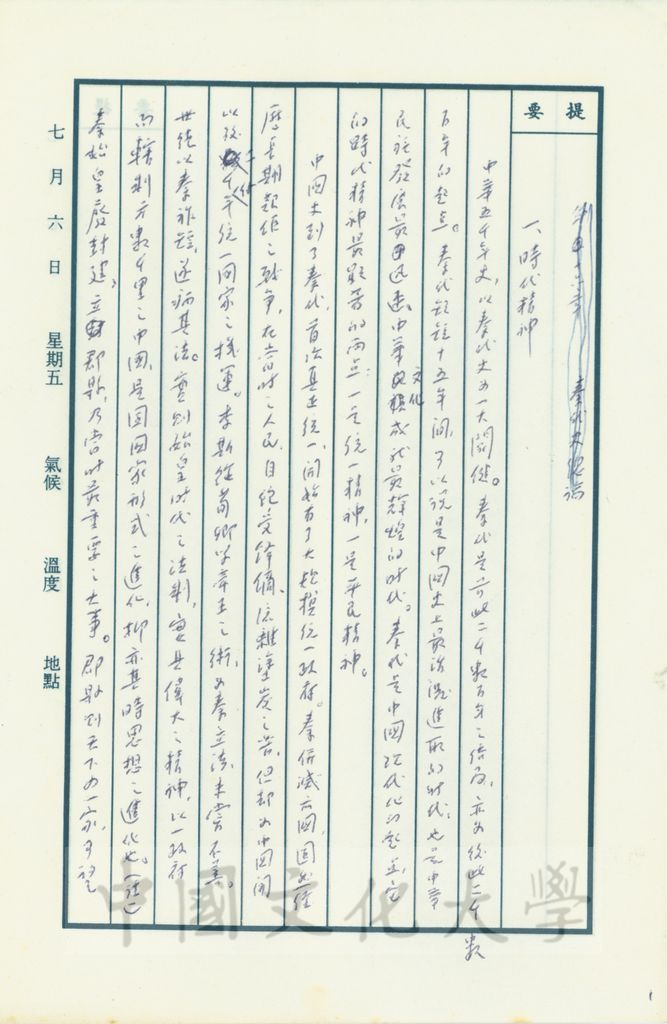 提要
秦代史總論
一、時代精神
中華五千年史，以秦代史為一大關健。秦代是前此二千數百年之結局，亦為後此二千數
百年的起点。秦代短短十五年間，可以說是中國史上最活潑進取的時代，也是中華
民族發展最迅速，中華文化積成就最輝煌的时代。秦代是中國現代化的起点，它
的時代精神最顯著的兩点：一是統一精神，一是平民精神。
中國史到了秦代，首次真正統一，開始有了大規模統一政府。秦併滅六國，固然經
歷長期艱鉅之戰爭，在當时之人民，自飽受鋒鏑流離塗炭之苦，但却為中國開
以後二千年統一國家之機運。李斯從荀卿學帝王之術，為秦立法，未嘗不善。
世徒以秦祚短，遂病其法。實則始皇时代之法制，實具偉大之精神，以一政府
而轄制方數千里之中國，是固國家形式之進化，抑亦其時思想之進化也。（註一）
秦始皇廢封建，立郡縣，乃當时最重要之大事。郡縣則天下為一家，可望
七月六日 星期五 氣候 溫度 地點
中國文化大學